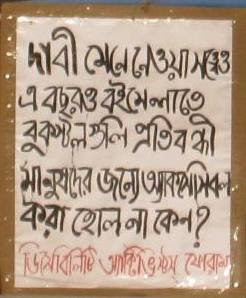 দাবী মেনে নেওয়া সত্ত্বেও
এ বছরও বইমেলাতে
বুকস্টল গুলি প্রতিবন্ধী
মানুষদের জন্যে অ্যাকসেসিবল
করা হোল না কেন?
ডিসেবিলিটি অ্যাক্টিভিস্টস ফোরাম